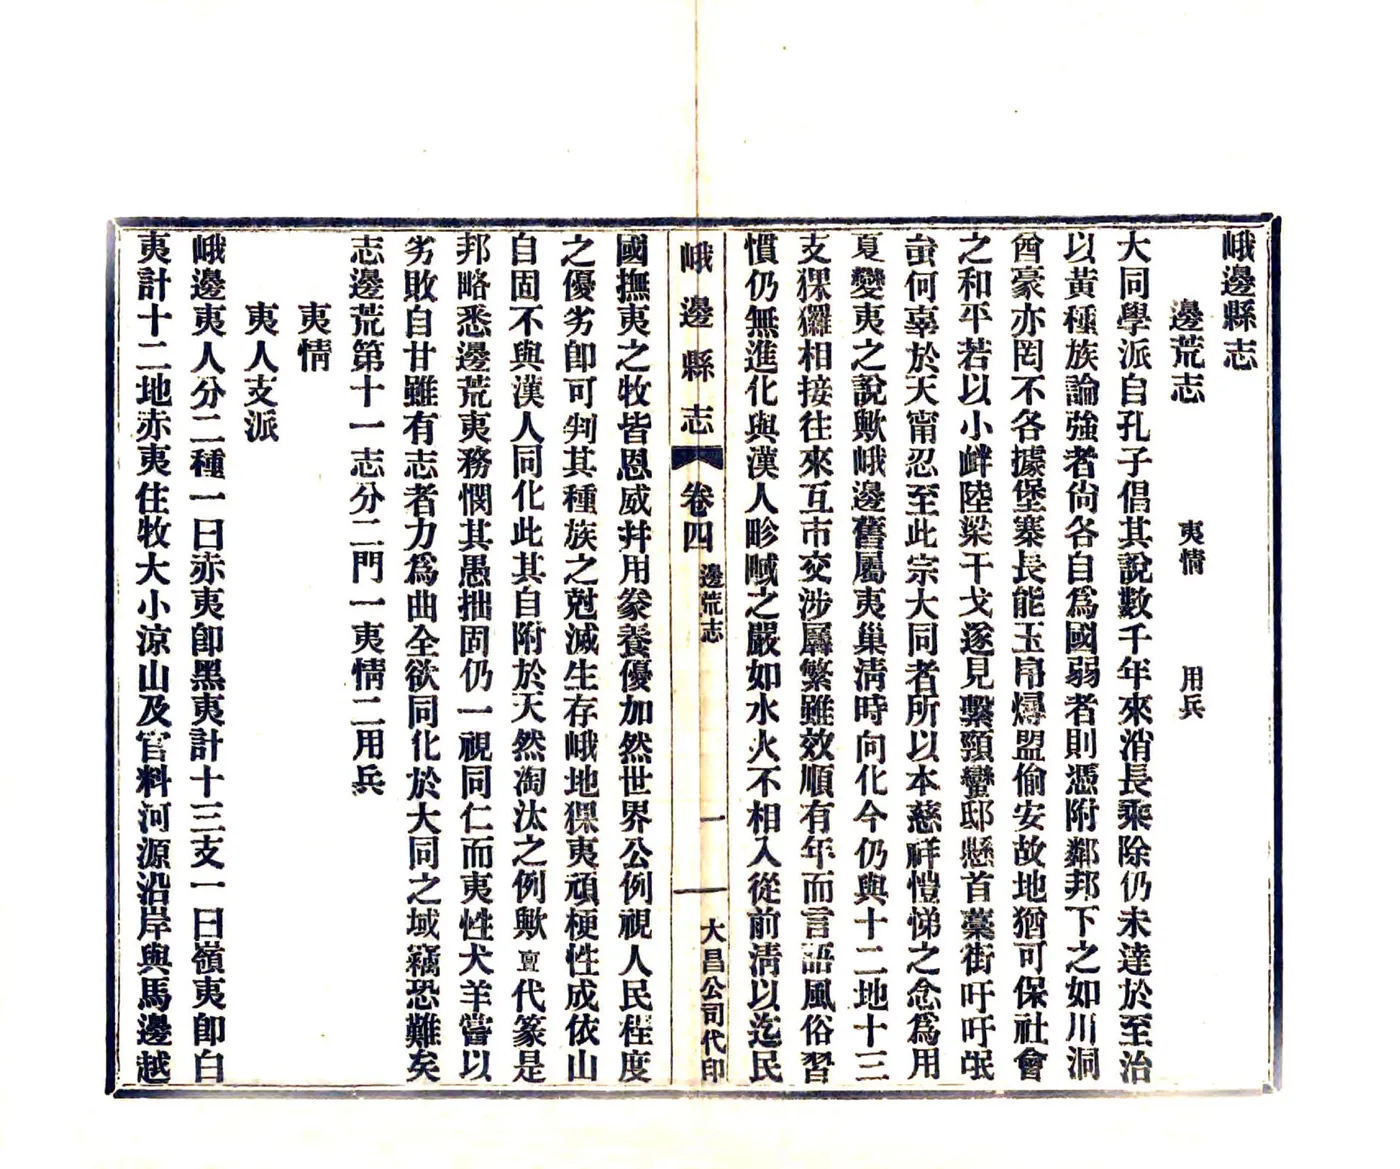 峨邊縣志
邊荒志　夷情　用兵
大同學派自孔子倡其說數千年來消長乘除仍未達於至治
以黃種族論強者尙各自爲國弱者則憑附鄰邦下之如川洞
酋豪亦罔不各據堡寨長能玉帛燖盟偷安故地猶可保社會
之和平若以小衅陸梁干戈遂見繫頸蠻邸懸首藁街吁吁氓
蚩何辜於天甯忍至此宗大同者所以本慈祥愷悌之念爲用
夏變夷之說歟峨邊舊屬夷巢淸時向化今仍與十二地十三
支猓玀相接往來互市交涉屬繁雖效順有年而言語風俗習
慣仍無進化與漢人畛域之嚴如水火不相入從前淸以迄民
峨邊縣志　卷四　邊荒志　一　大昌公司代印
國撫夷之牧皆恩威幷用豢養優加然世界公例視人民程度
之優劣卽可判其種族之尅滅生存峨地猓夷頑梗性成依山
自固不與漢人同化此其自附於天然淘汰之例歟亶代篆是
邦略悉邊荒夷務憫其愚拙固仍一視同仁而夷性犬羊嘗以
劣敗自甘雖有志者力爲曲全欲同化於大同之域竊恐難矣
志邊荒第十一志分二門一夷情二用兵
夷情
夷人支派
峨邊夷人分二種一曰赤夷卽黑夷計十三支一曰嶺夷卽白
夷計十二地赤夷住牧大小涼山及官料河源沿岸與馬邊越